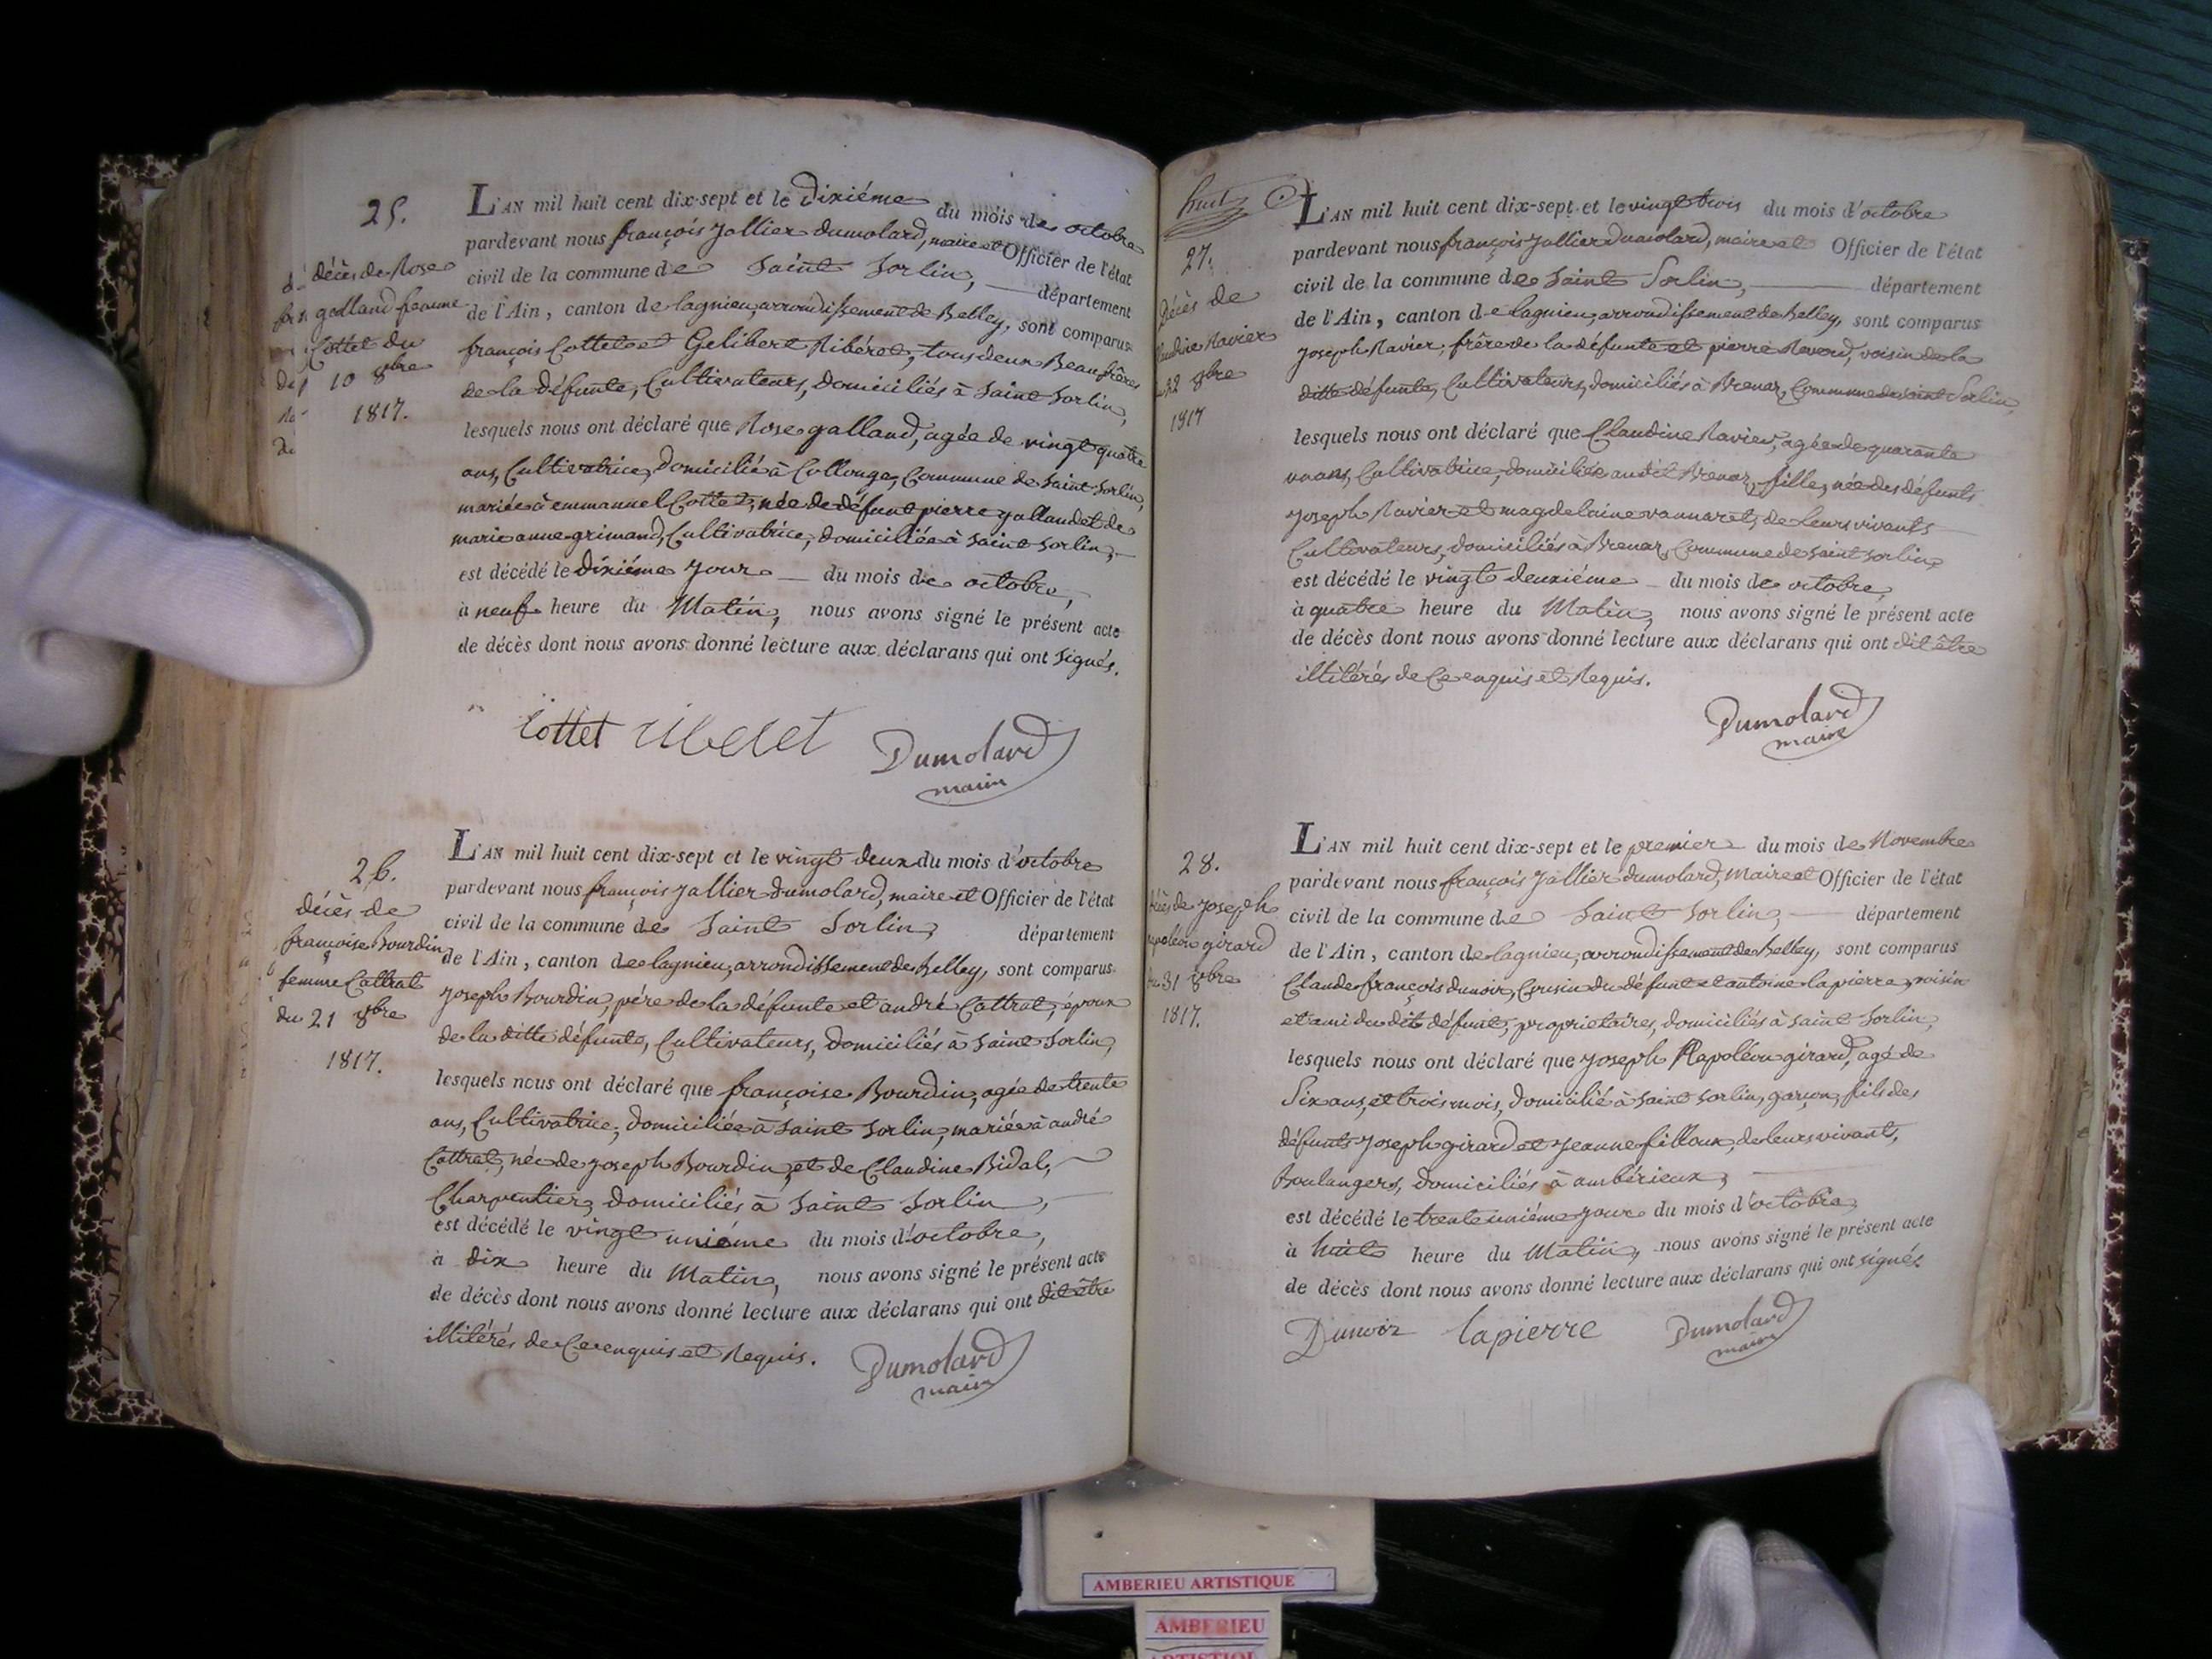 25.
décès de Rose
galland femme
Cottet du
10 8bre
1817.
L'AN mil huit cent dix-sept et le dixiéme du mois de octobre
pardevant nous françois Jallier dumolard, maire et Officier de l'état
civil de la commune de Saint Sorlin, département
de l'Ain, canton de lagnieu, arrondissement de Belley, sont comparus
françois Cottet et Gelibert Ribéret, tous deux Beaufrères
de la défunte, Cultivateurs, domiciliés à Saint Sorlin,
lesquels nous ont déclaré que Rose galland, agée de vingt quatre
ans, Cultivatrice, domicilié à Collonge, Commune de Saint Sorlin,
mariée à emmanuel Cottet, née de défunt pierre galland et de
marie anne grimand, Cultivatrice, domiciliée à Saint Sorlin,
est décédé le dixiéme jour du mois de octobre,
à neuf heure du Matin, nous avons signé le présent acte
de décès dont nous avons donné lecture aux déclarans qui ont signés.
Cottet riberet Dumolard
maire
26.
décès de
françoise Bourdin
femme Cattrat
du 21 8bre
1817.
L'AN mil huit cent dix-sept et le vingt deux du mois d'octobre
pardevant nous françois Jallier dumolard, maire et Officier de l'état
civil de la commune de Saint Sorlin, département
de l'Ain, canton de lagnieu, arrondissement de Belley, sont comparus
Joseph Bourdin, pére de la défunte et andré Cattrat, époux
de la ditte défunte, Cultivateurs, domiciliés à Saint Sorlin,
lesquels nous ont déclaré que françoise Bourdin, agée de trente
ans, Cultivatrice, domiciliée à Saint Sorlin, mariée à andré
Cattrat, née de Joseph Bourdin, et de Claudine Bidal,
Charpentier, domiciliés à Saint Sorlin,
est décédé le vingt uniéme du mois d'octobre,
à dix heure du Matin, nous avons signé le présent acte
de décès dont nous avons donné lecture aux déclarans qui ont dit être
illitérés de Ce enquis et Requis.
Dumolard
maire
huit
27.
Décès de
Claudine Ravier
22 8bre
1817
L'AN mil huit cent dix-sept et le vingt trois du mois d'octobre
pardevant nous françois Jallier Dumolard, maire et Officier de l'état
civil de la commune de Saint Sorlin, département
de l'Ain, canton de lagnieu, arrondissement de belley, sont comparus
Joseph Ravier, frére de la défunte et pierre Reverd, voisin de la
ditte défunte, Cultivateurs, domiciliés à Brenaz, Commune de Saint Sorlin,
lesquels nous ont déclaré que Claudine Ravier, agée de quarante
un ans, Cultivatrice, domiciliée au dit Brenaz, fille, née des défunts
Joseph Ravier et magdelaine vannaret, de Leurs vivants
Cultivateurs, domiciliés à Brenaz, Commune de Saint Sorlin,
est décédé le vingt deuxiéme du mois de octobre,
à quatre heure du Matin, nous avons signé le présent acte
de décès dont nous avons donné lecture aux déclarans qui ont dit être
illitérés de Ce enquis et Requis.
Dumolard
maire
28.
décès de Joseph
napoléon girard
du 31 8bre
1817.
L'AN mil huit cent dix-sept et le premier du mois de Novembre
pardevant nous françois Jallier dumolard, Maire et Officier de l'état
civil de la commune de Saint Sorlin, département
de l'Ain, canton de lagnieu, arrondissement de belley, sont comparus
Claude françois dunoir, Cousin du défunt et antoine lapierre, voisin
et ami du dit défunt, proprietaires, domiciliés à Saint Sorlin,
lesquels nous ont déclaré que Joseph Napoléon girard, agé de
Six ans, et trois mois, domicilié à Saint Sorlin, garçon, fils des
défunts Joseph girard et Jeanne filloux, de leurs vivant,
Boulangers, domiciliés à ambérieux,
est décédé le trente uniéme jour du mois d'octobre,
à huit heure du Matin, nous avons signé le présent acte
de décès dont nous avons donné lecture aux déclarans qui ont signés
Dunoir lapierre Dumolard
maire
AMBERIEU ARTISTIQUE
AMBERIEU
ARTISTIQUE